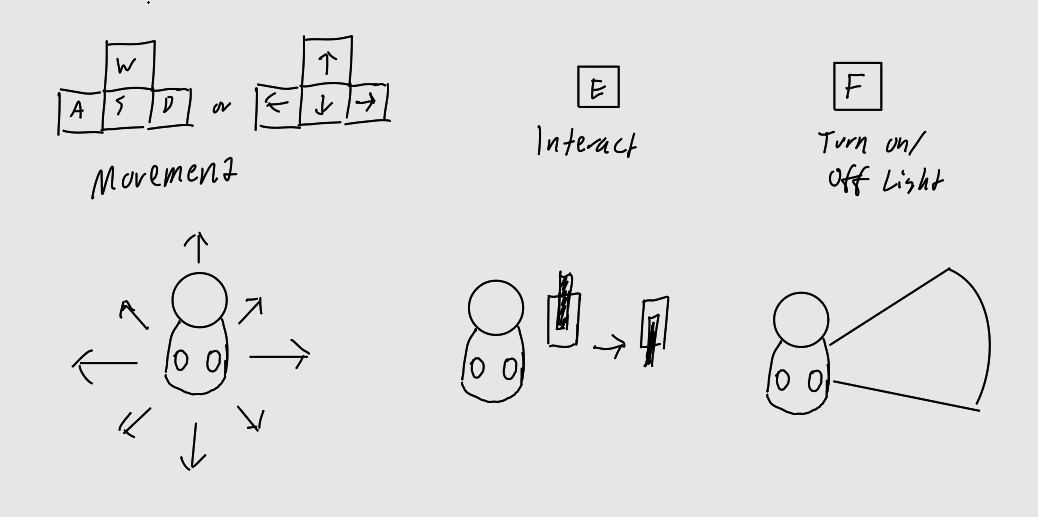 W
A S D or ← ↓ →
↑
Movement
E
Interact
F
Turn on/
Off Light